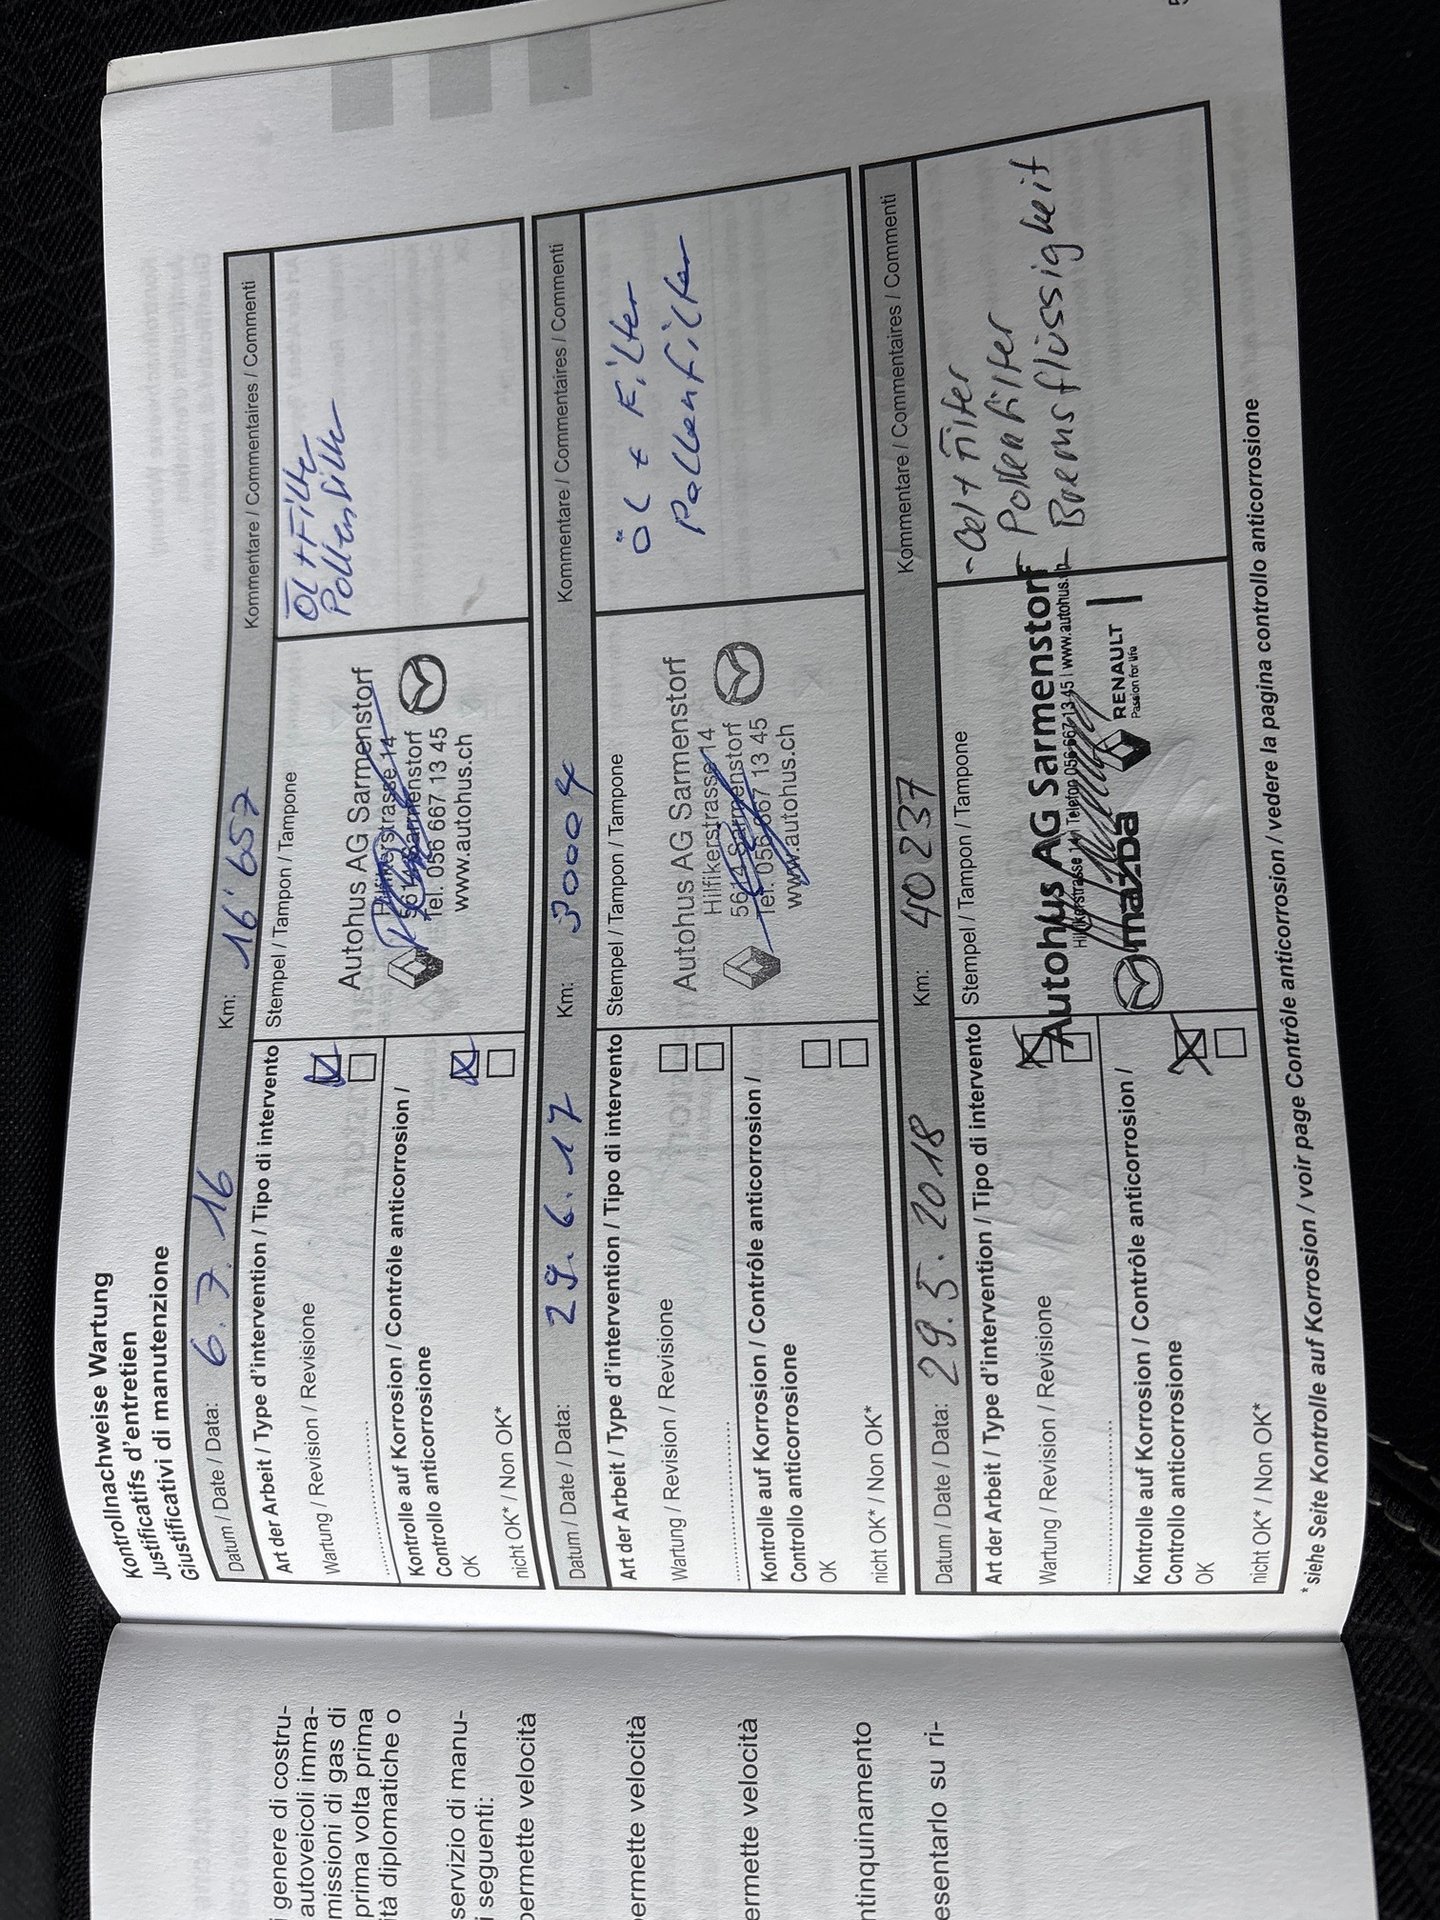 i genere di costru-
autoveicoli imma-
missioni di gas di
prima volta prima
ità diplomatiche o
servizio di manu-
i seguenti:
permette velocità
permette velocità
permette velocità
ntinquinamento
esentarlo su ri-
Kontrollnachweise Wartung
Justificatifs d'entretien
Giustificativi di manutenzione
Datum / Date / Data: 6.7.16 Km: 16'657 Kommentare / Commentaires / Commenti
Art der Arbeit / Type d'intervention / Tipo di intervento Stempel / Tampon / Tampone
Öl + Filter
Pollenfilter
Wartung / Revision / Revisione
Autohus AG Sarmenstorf
Hilfikerstrasse 14
5614 Sarmenstorf
Tel. 056 667 13 45
www.autohus.ch
Kontrolle auf Korrosion / Contrôle anticorrosion /
Controllo anticorrosione
OK
nicht OK* / Non OK*
Datum / Date / Data: 29.6.17 Km: 30004 Kommentare / Commentaires / Commenti
Art der Arbeit / Type d'intervention / Tipo di intervento Stempel / Tampon / Tampone
Öl + Filter
Pollenfilter
Wartung / Revision / Revisione
Autohus AG Sarmenstorf
Hilfikerstrasse 14
5614 Sarmenstorf
Tel. 056 667 13 45
www.autohus.ch
Kontrolle auf Korrosion / Contrôle anticorrosion /
Controllo anticorrosione
OK
nicht OK* / Non OK*
Datum / Date / Data: 29.5.2018 Km: 40237 Kommentare / Commentaires / Commenti
Art der Arbeit / Type d'intervention / Tipo di intervento Stempel / Tampon / Tampone
- Oel + Filter
- Pollenfilter
- Bremsflüssigkeit
Wartung / Revision / Revisione
Autohus AG Sarmenstorf
Hilfikerstrasse 14 | Telefon 056 667 13 45 | www.autohus.ch
mazda RENAULT
Passion for life
Kontrolle auf Korrosion / Contrôle anticorrosion /
Controllo anticorrosione
OK
nicht OK* / Non OK*
* siehe Seite Kontrolle auf Korrosion / voir page Contrôle anticorrosion / vedere la pagina controllo anticorrosione